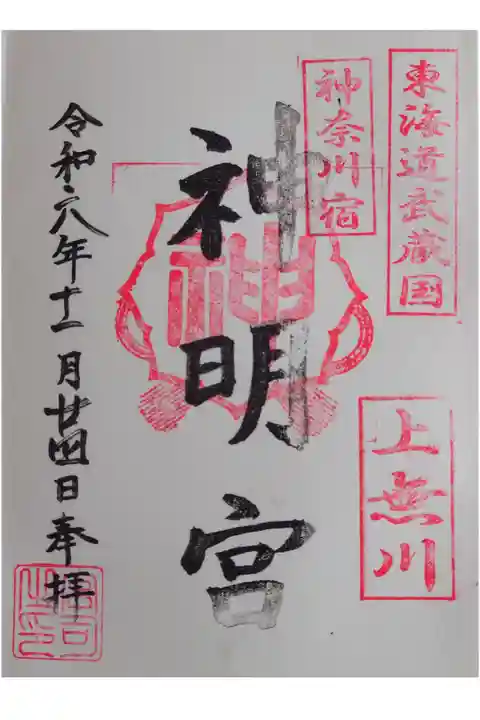 東海道武蔵国
神奈川宿
上無川
神
神明宮
令和六年十一月廿四日奉拝